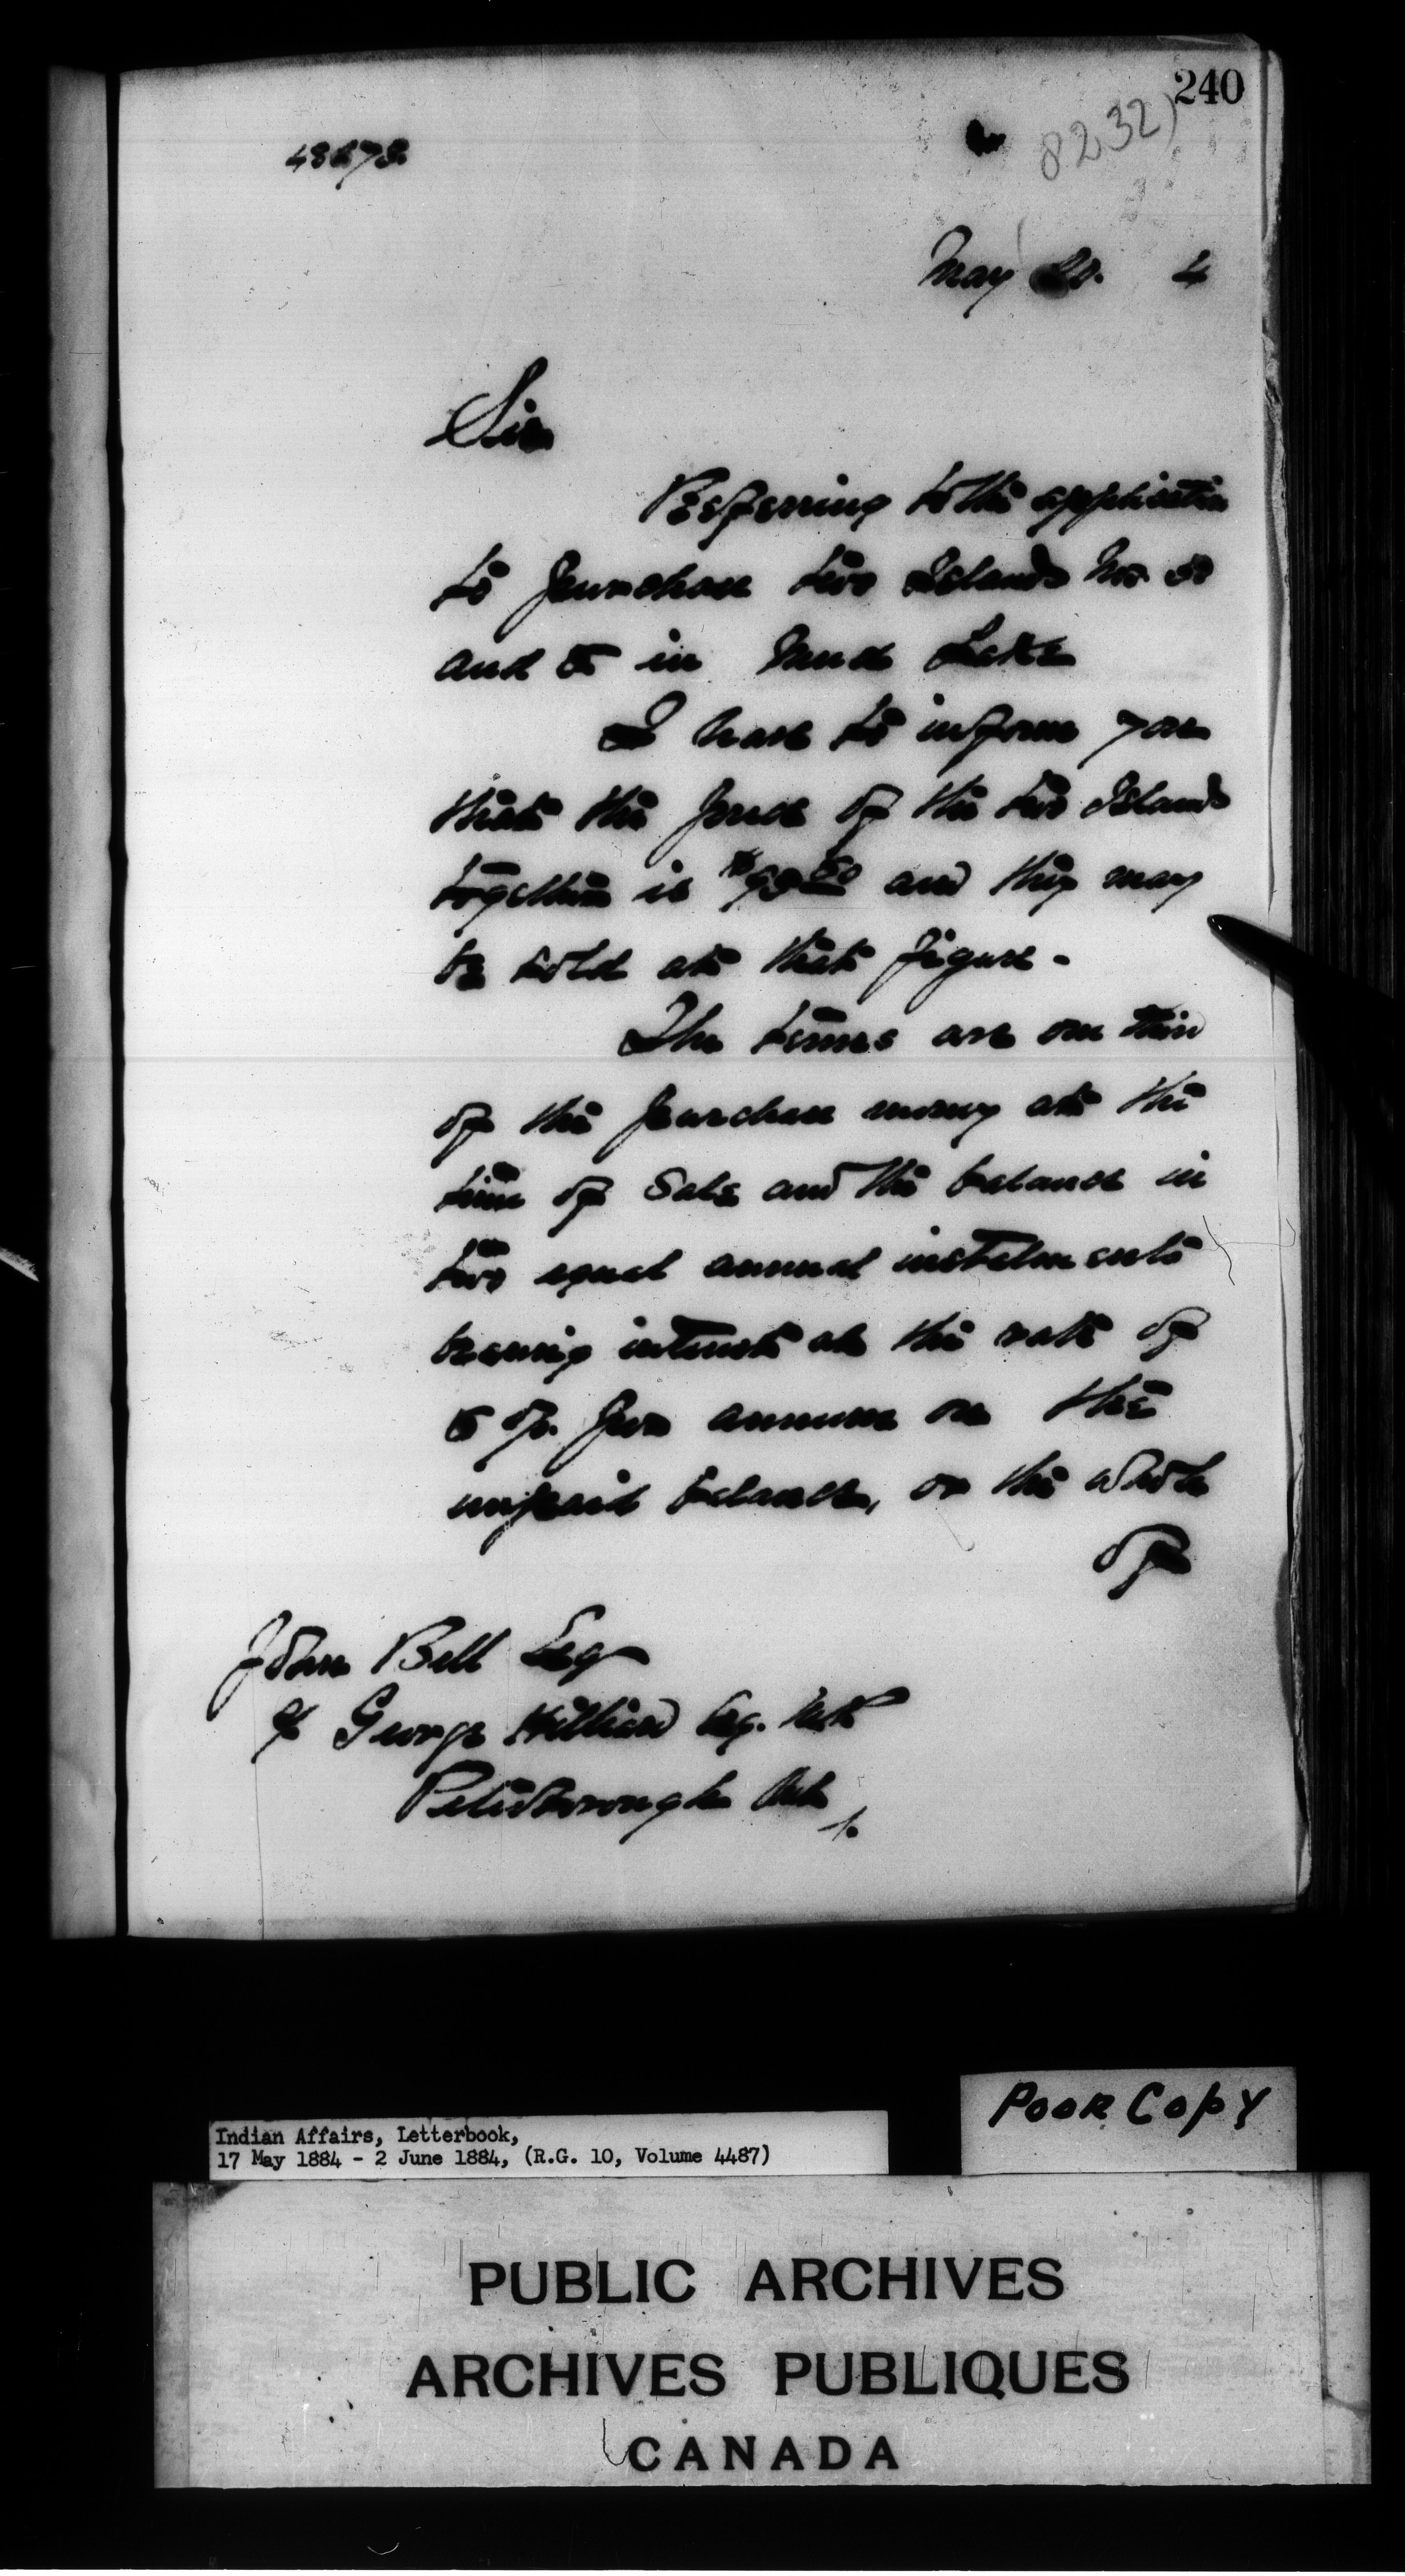 240
8232)
May 4
Sir
Referring to the application
to purchase two Islands No.
and in Mud Lake
I have to inform you
that the price of the two Islands
together is and they may
be sold at that figure -
The terms are one third
of the purchase money at the
time of Sale and the balance in
two equal annual instalments
bearing interest at the rate of
per annum on the
unpaid balance, or the whole
of
John Bell Esq
George Hilliard Esq. M.P.
Peterborough Ont
Poor Copy
Indian Affairs, Letterbook,
17 May 1884 - 2 June 1884, (R.G. 10, Volume 4487)
PUBLIC ARCHIVES
ARCHIVES PUBLIQUES
CANADA